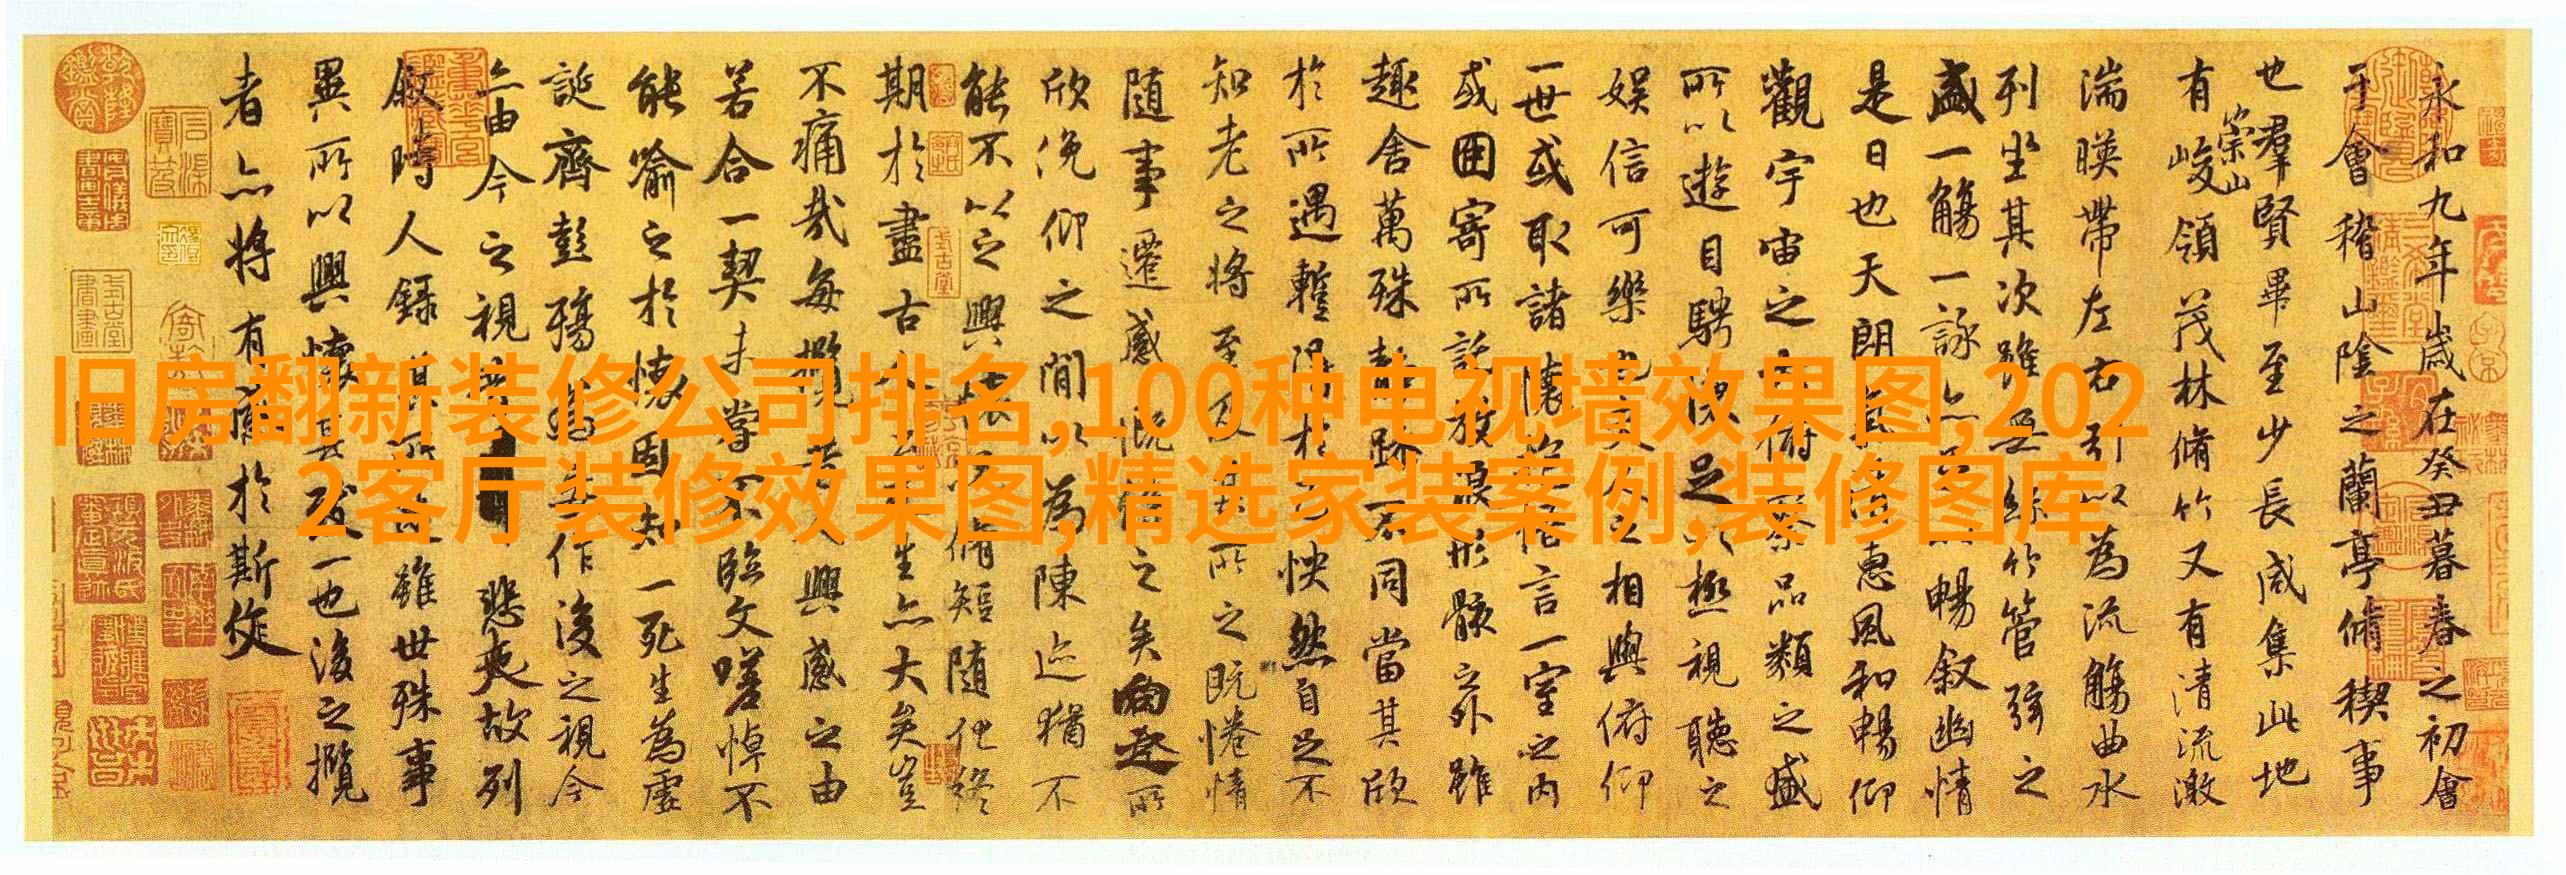 旧房翻新装修公司排名,100种电视墙效果图,202
2客厅装修效果图,精选家装案例,装修图库
永和九年歲在癸丑暮春之初會
于會稽山陰之蘭亭脩稧事
也羣賢畢至少長咸集此地
有崇山峻領茂林脩竹又有清流激
湍暎帶左右引以為流觴曲水
列坐其次雖無絲竹管弦之
盛一觴一詠亦足以暢敘幽情
是日也天朗氣清惠風和暢仰
觀宇宙之大俯察品類之盛
所以遊目騁懷足以極視聽之
娛信可樂也夫人之相與俯仰
一世或取諸懷抱悟言一室之內
或因寄所託放浪形骸之外雖
趣舍萬殊靜躁不同當其欣
於所遇暫得於己怏然自足不
知老之將至及其所之既惓情
隨事遷感慨係之矣向之所
欣俛仰之間以為陳迹猶不
能不以之興懷況脩短隨化終
期於盡古人云死生亦大矣豈
不痛哉每攬昔人興感之由
若合一契未嘗不臨文嗟悼不
能喻之於懷固知一死生為虛
誕齊彭殤為妄作後之視今
亦由今之視昔悲夫故列
敘時人錄其所述雖世殊事
異所以興懷其致一也後之攬
者亦將有感於斯文